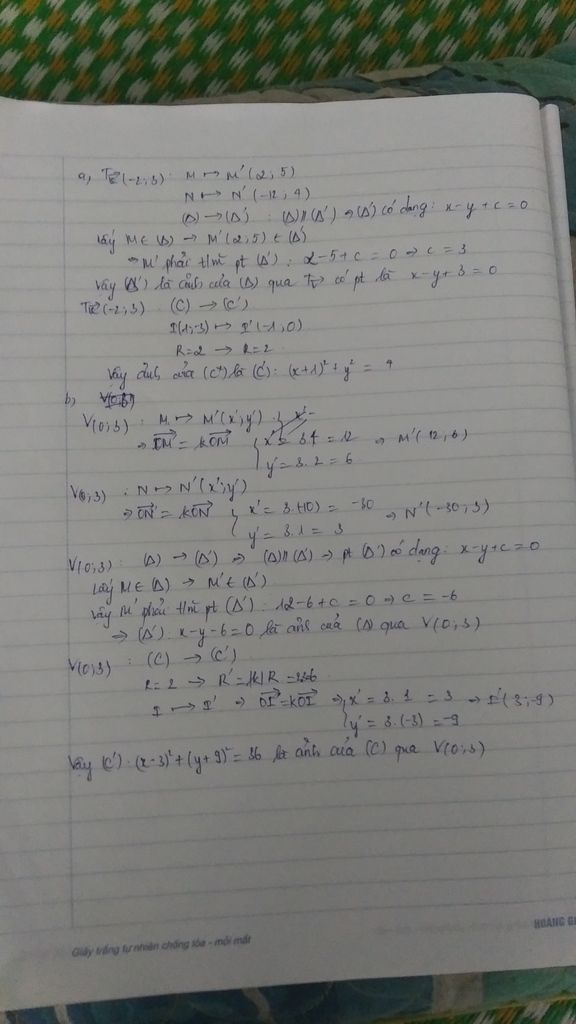 a, T_v⃗(-2;3): M ↦ M'(2;5)
N ↦ N'(-12;4)
(Δ) → (Δ') : (Δ)//(Δ') ⇒ (Δ') có dạng: x-y+c=0
Lấy M∈(Δ) → M'(2;5) ∈ (Δ')
⇒ M' phải t/m pt (Δ'): 2-5+c=0 ⇒ c=3
Vậy (Δ') là ảnh của (Δ) qua T_v⃗ có pt là x-y+3=0
T_v⃗(-2;3): (C) → (C')
I(1;-3) ↦ I'(-1;0)
R=2 → R=2
Vậy ảnh của (C) là (C'): (x+1)²+y² = 4
b,
V(0;3): M ↦ M'(x';y')
⇒ OM' = kOM { x' = 3.4 = 12 ⇒ M'(12;6)
y' = 3.2 = 6
V(0;3) : N ↦ N'(x';y')
⇒ ON' = kON { x' = 3.(-10) = -30 ⇒ N'(-30;3)
y' = 3.1 = 3
V(0;3): (Δ) → (Δ') ⇒ (Δ)//(Δ') ⇒ pt (Δ') có dạng: x-y+c=0
Lấy M∈(Δ) → M'∈(Δ')
Vậy M' phải t/m pt (Δ'): 12-6+c=0 ⇒ c=-6
⇒ (Δ'): x-y-6=0 là ảnh của (Δ) qua V(0;3)
V(0;3) : (C) → (C')
R=2 → R'=|k|R =
I ↦ I' ⇒ OI'=kOI ⇒ { x' = 3.1 = 3 ⇒ I'(3;-9)
y' = 3.(-3) = -9
Vậy (C'): (x-3)²+(y+9)²=36 là ảnh của (C) qua V(0;3)
Giấy trắng tự nhiên chống lóa - mỏi mắt